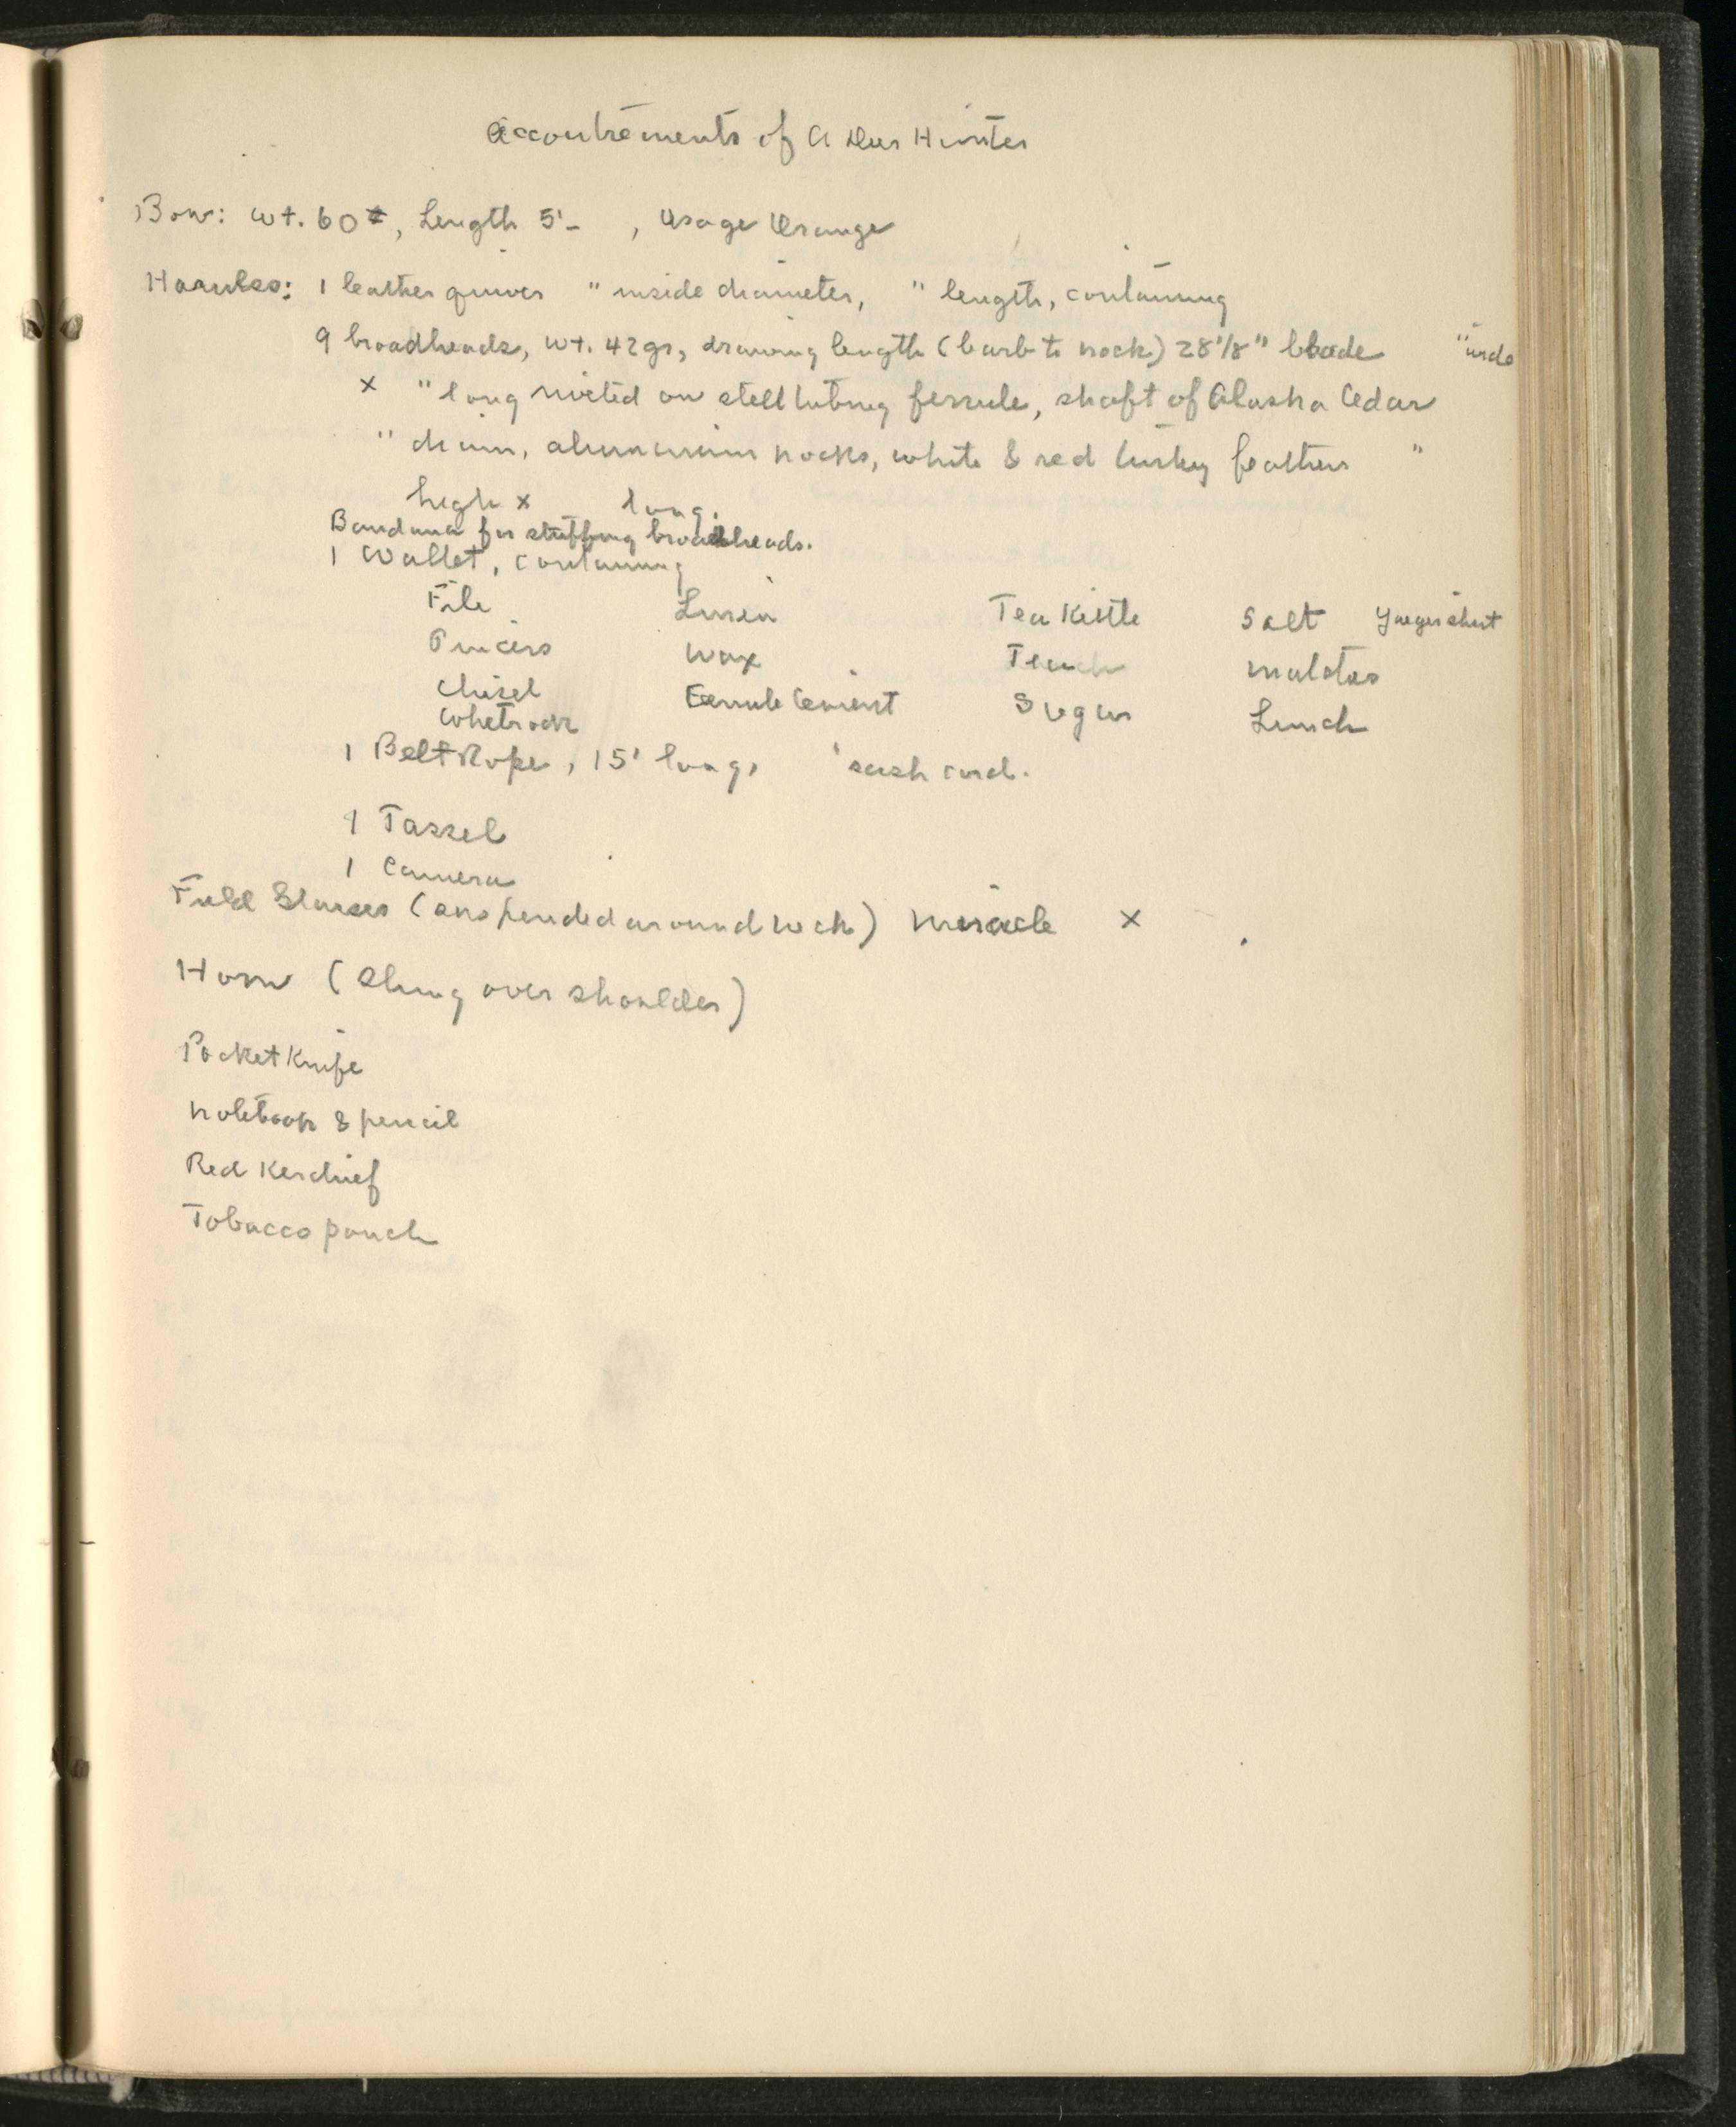 Accoutrements of A Deer Hunter
Bow: wt. 60#, Length 5'- , Osage Orange
Harness: 1 leather quiver " inside diameter, " length, containing
9 broadheads, wt. 42gr, drawing length (barb to nock) 28 1/8" blade " wide
x " long riveted on steel tubing ferrule, shaft of Alaska Cedar
" diam, aluminum nocks, white & red turkey feathers "
high x long.
Bandana for stuffing broadheads.
1 Wallet, containing
File Linen Tea Kettle Salt Yaeger shirt
Pincers Wax Tea matches
Chisel Ferrule Cement Sugar Lunch
Whetrock
1 Belt Rope, 15' long, ' sash cord.
1 Tassel
1 Camera
Field Glasses (suspended around neck) miracle x
Horn (slung over shoulder)
Pocket Knife
Notebook & pencil
Red Kerchief
Tobacco pouch